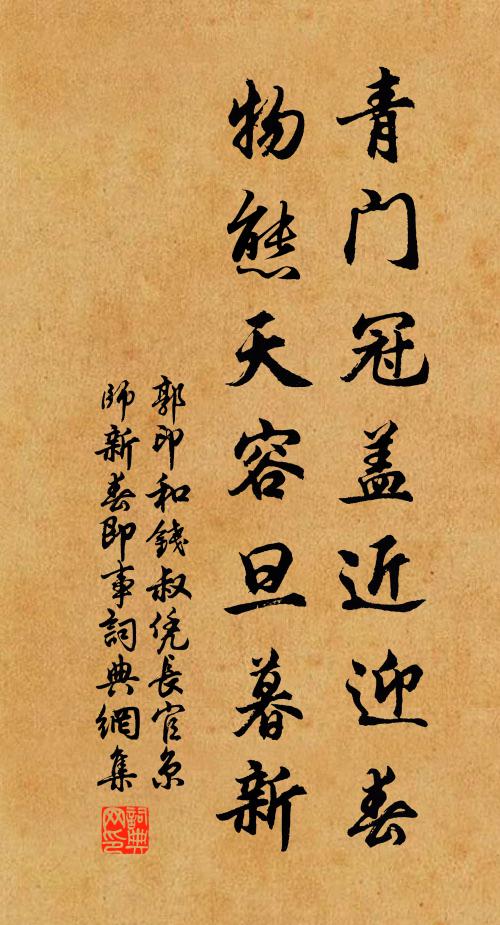 青门冠盖近迎春
物態天容旦暮新
郭印和錢叔凭長官京
師新春即事詞典網集
詞典网印